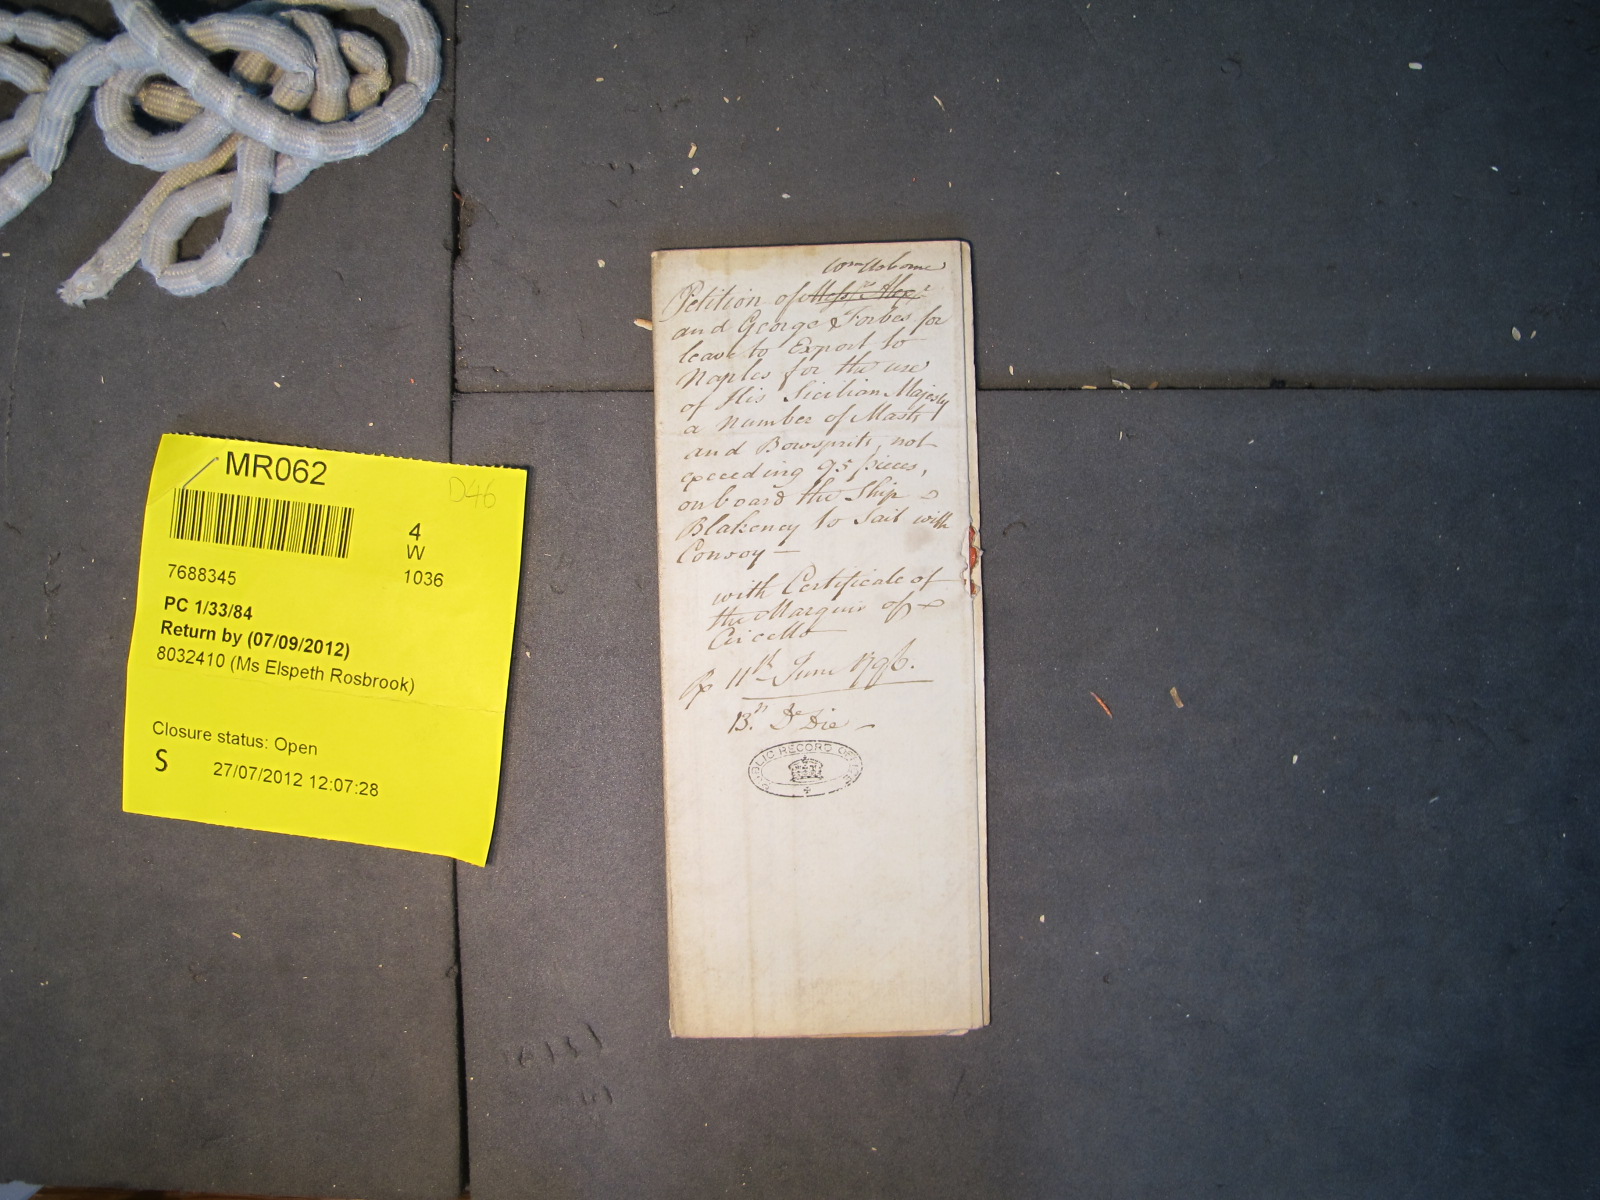 MR062
D46
4
W
1036
7688345
PC 1/33/84
Return by (07/09/2012)
8032410 (Ms Elspeth Rosbrook)
Closure status: Open
S
27/07/2012 12:07:28
Wm Osborne
Petition of Messrs. Alexr.
and George Forbes for
leave to Export to
Naples for the use
of His Sicilian Majesty
a Number of Masts
and Bowsprits, not
exceeding 95 pieces,
on board the Ship
Blakeney to Sail with
Convoy —
with Certificate of
the Marquis of
Circello
11th June 1796.
PUBLIC RECORD OFFICE